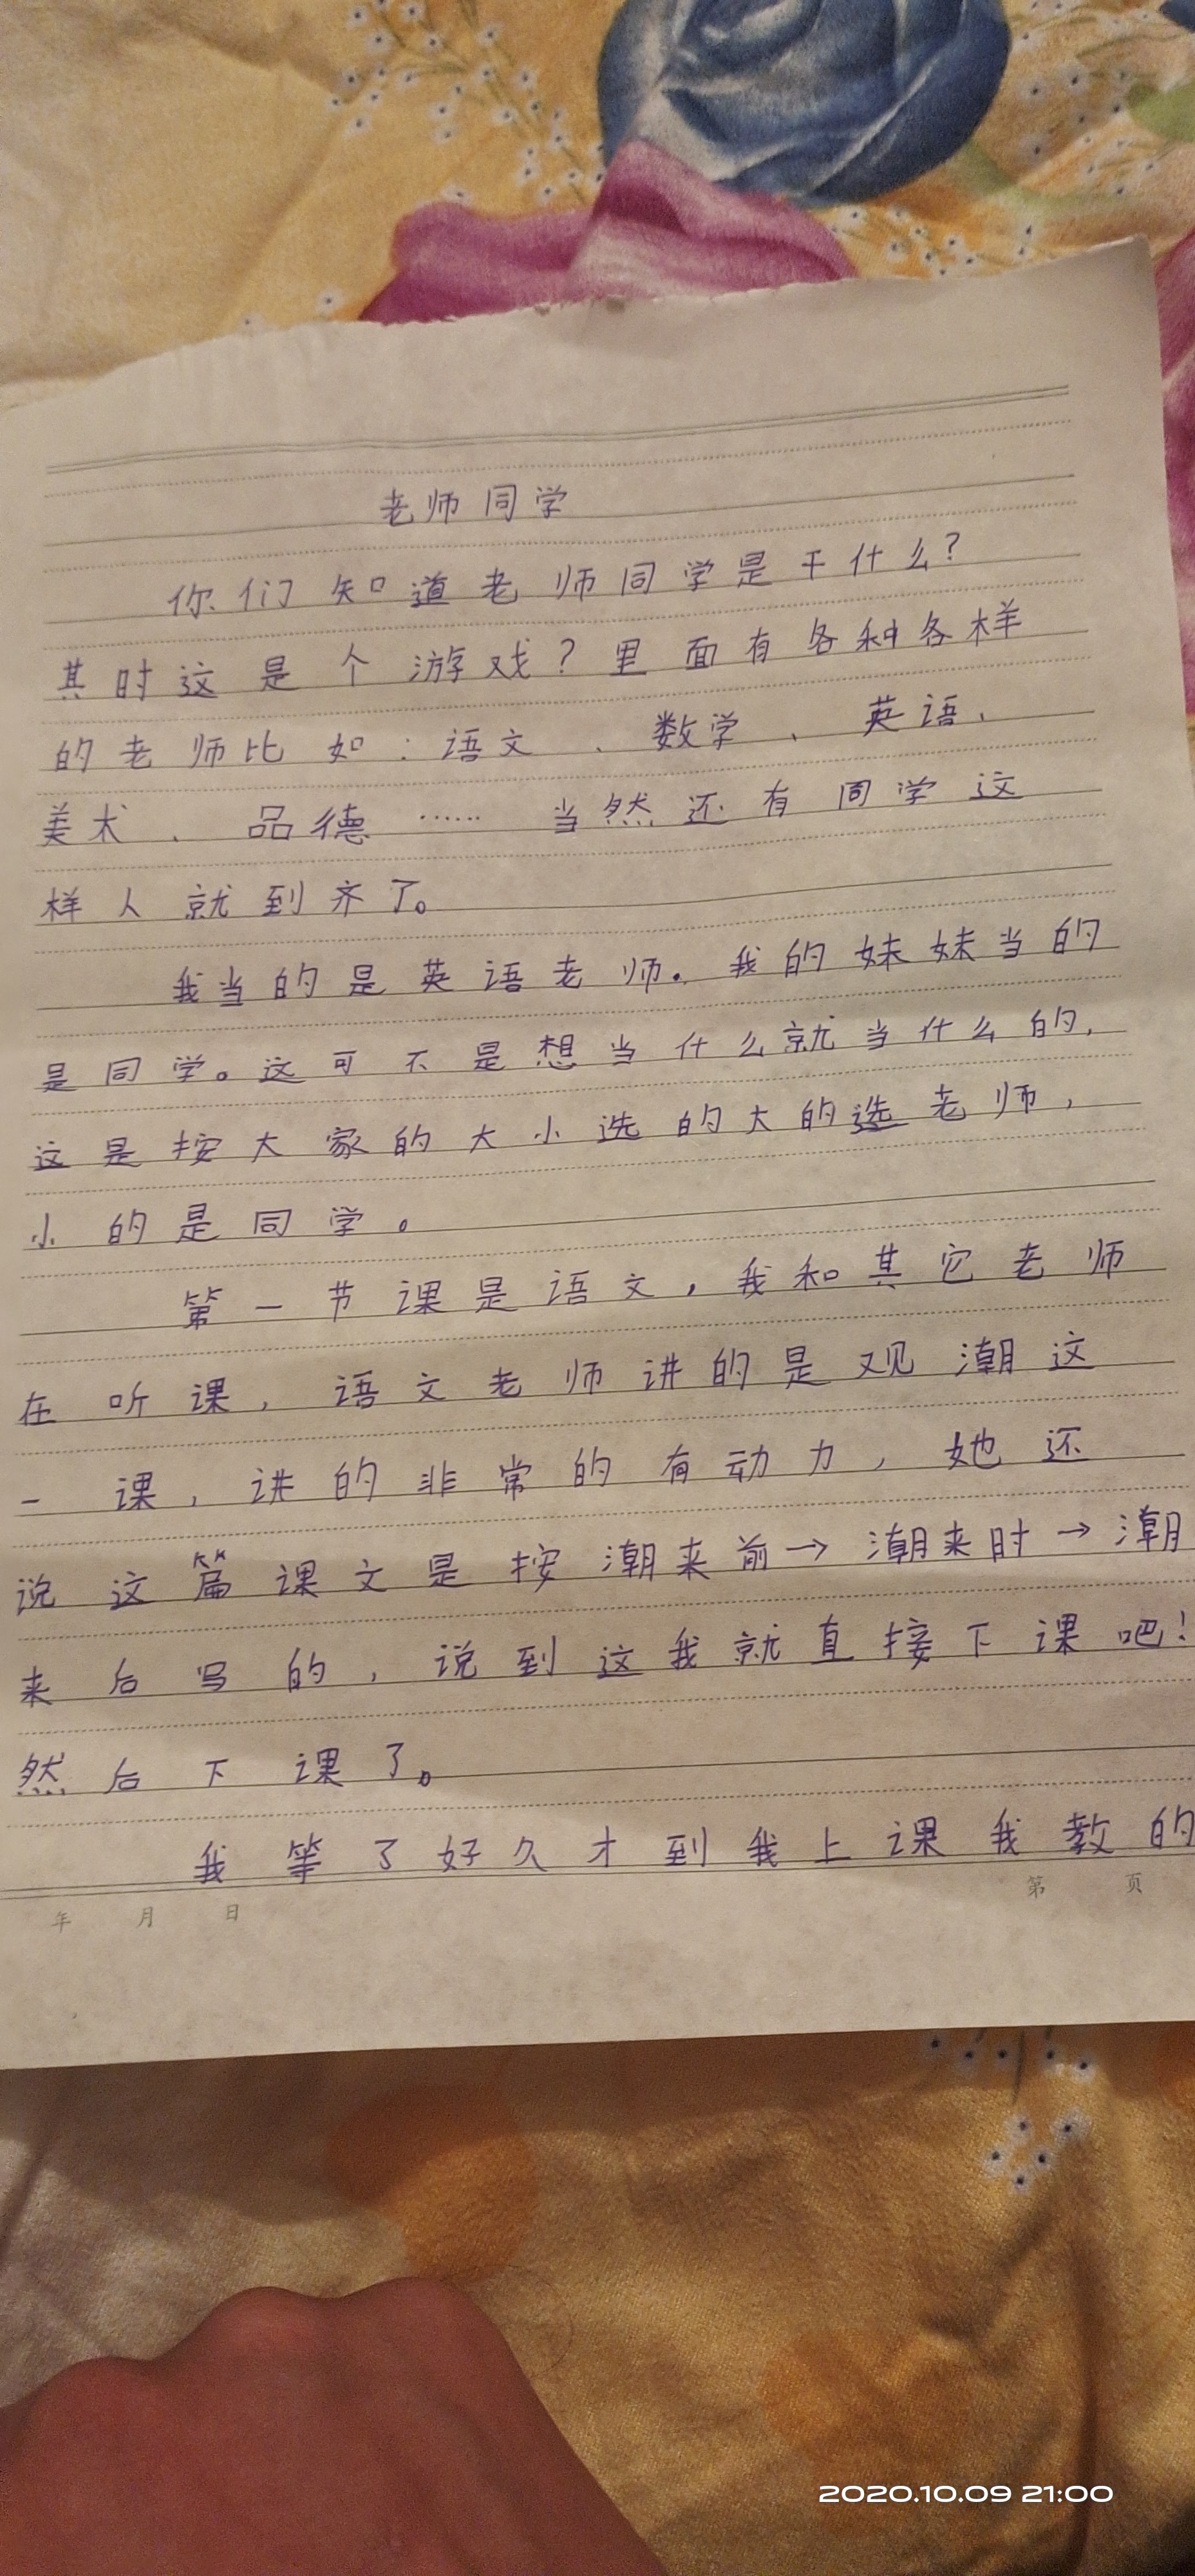 老师同学
你们知道老师同学是干什么?
其时这是个游戏?里面有各种各样
的老师比如:语文、数学、英语、
美术、品德……当然还有同学这
样人就到齐了。
我当的是英语老师。我的妹妹当的
是同学。这可不是想当什么就当什么的,
这是按大家的大小选的大的选老师,
小的是同学。
第一节课是语文,我和其它老师
在听课,语文老师讲的是观潮这
一课,讲的非常的有动力,她还
说这篇课文是按潮来前→潮来时→潮
来后写的,说到这我就直接下课吧!
然后下课了。
我等了好久才到我上课我教的
年 月 日 第 页
2020.10.09 21:00